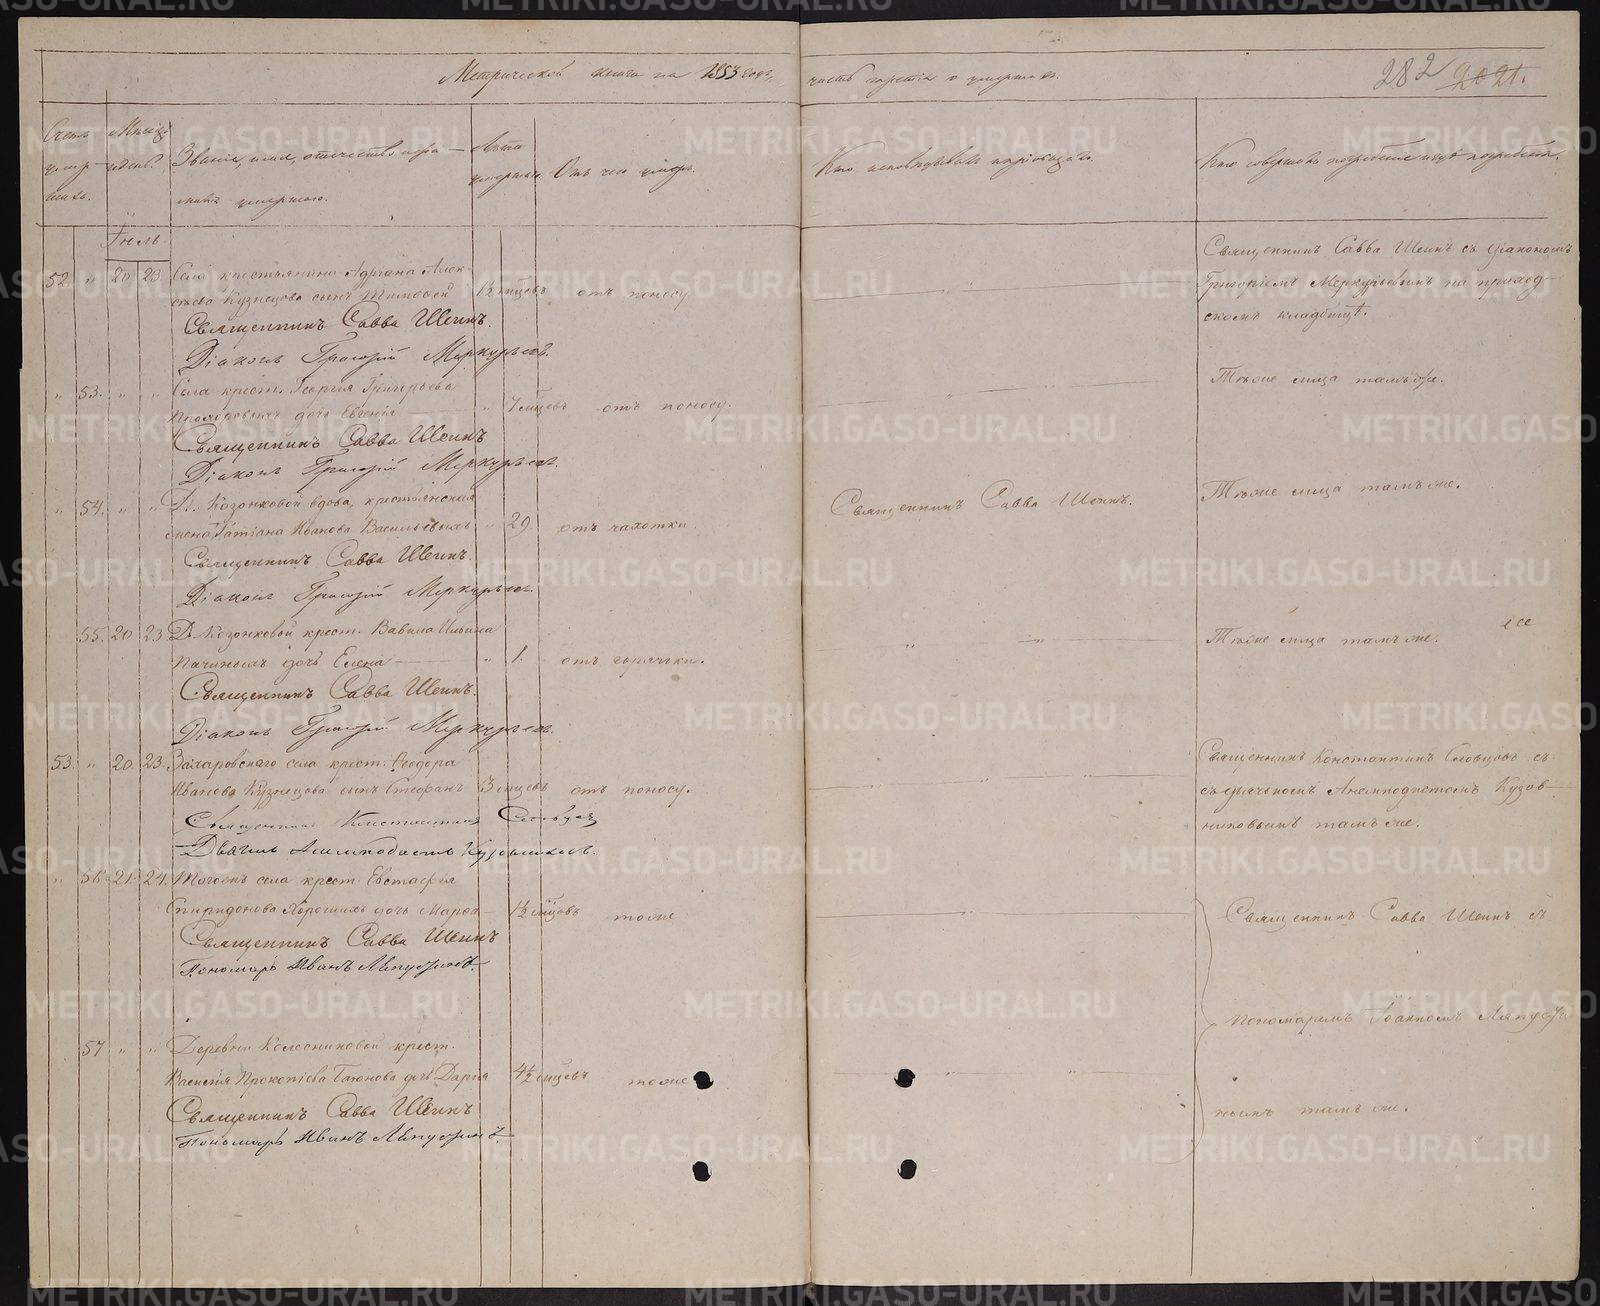 Метрической книги на 1853 годъ, часть третія о умершихъ.
282 2021.
Счетъ умер-шихъ.
Мѣсяцъ и день.
Званіе, имя, отчество и фа-
милія умершаго.
Лѣта умершаго.
Отъ чего умеръ.
Кто исповѣдывалъ и пріобщалъ.
Кто совершалъ погребеніе и гдѣ погребены.
Іюль
52 " 20 23 Села крестьянина Адріана Алек-
сѣева Кузнецова сынъ Тимофей 1½ мѣсцевъ отъ поносу
Священникъ Савва Шеинъ съ діакономъ
Григоріемъ Меркурьевымъ на приход-
скомъ кладбищѣ.
Священникъ Савва Шеинъ.
Діаконъ Григорій Меркурьевъ.
" 53. " " Села крест. Георгія Григорьева
дочь Евгенія " 7 мѣсцевъ отъ поносу.
Тѣже лица тамъ же.
Священникъ Савва Шеинъ
Діаконъ Григорій Меркурьевъ.
" 54. " " Д. Казонковой вдова, крестьянская
жена Татіана Иванова Васильевыхъ " 29 отъ чахотки.
Священникъ Савва Шеинъ.
Тѣже лица тамъ же.
Священникъ Савва Шеинъ.
Діаконъ Григорій Меркурьевъ.
55. 20 23 Д. Казонковой крест. Вавила Ильина
дочь Елена " 1. отъ горячки.
Тѣже лица тамъ же.
Священникъ Савва Шеинъ.
Діаконъ Григорій Меркурьевъ.
53. " 20 23. Захаровскаго села крест. Ѳеодора
Иванова Кузнецова сынъ Стефанъ 3 мѣсцевъ отъ поносу.
Священникъ Константинъ Словцовъ съ
дьячкомъ Анемподистомъ Кузов-
никовымъ тамъ же.
Священникъ Константинъ Словцовъ
Дьячекъ Анемподистъ Кузовниковъ.
" 56 21. 24. Тогожъ села крест. Евстафія
Спиридонова Хорошихъ дочь Марѳа 1½ мѣсцовъ тоже
Священникъ Савва Шеинъ съ
Священникъ Савва Шеинъ
Пономарь Иванъ Ляпустинъ.
пономаремъ Іоанномъ Ляпусти
57 " " Деревни Колесниковой крест.
Василія Прокопіева дочь Дарія 4½ мѣсцевъ тоже
нымъ тамъ же.
Священникъ Савва Шеинъ
Пономарь Иванъ Ляпустинъ.
METRIKI.GASO-URAL.RU